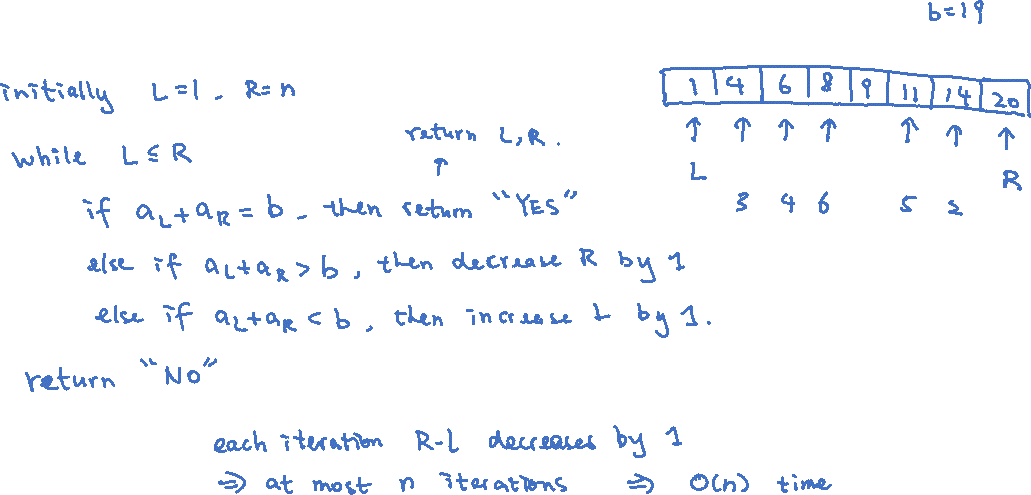 b=19
initially L=1, R=n
1 4 6 8 9 11 14 20
return L,R.
↑ ↑ ↑ ↑ ↑ ↑ ↑
while L≤R
↑
L R
if a_L+a_R=b, then return "YES"
3 4 6 5 2
else if a_L+a_R>b, then decrease R by 1
else if a_L+a_R<b, then increase L by 1.
return "NO"
each iteration R-L decreases by 1
⇒ at most n iterations ⇒ O(n) time